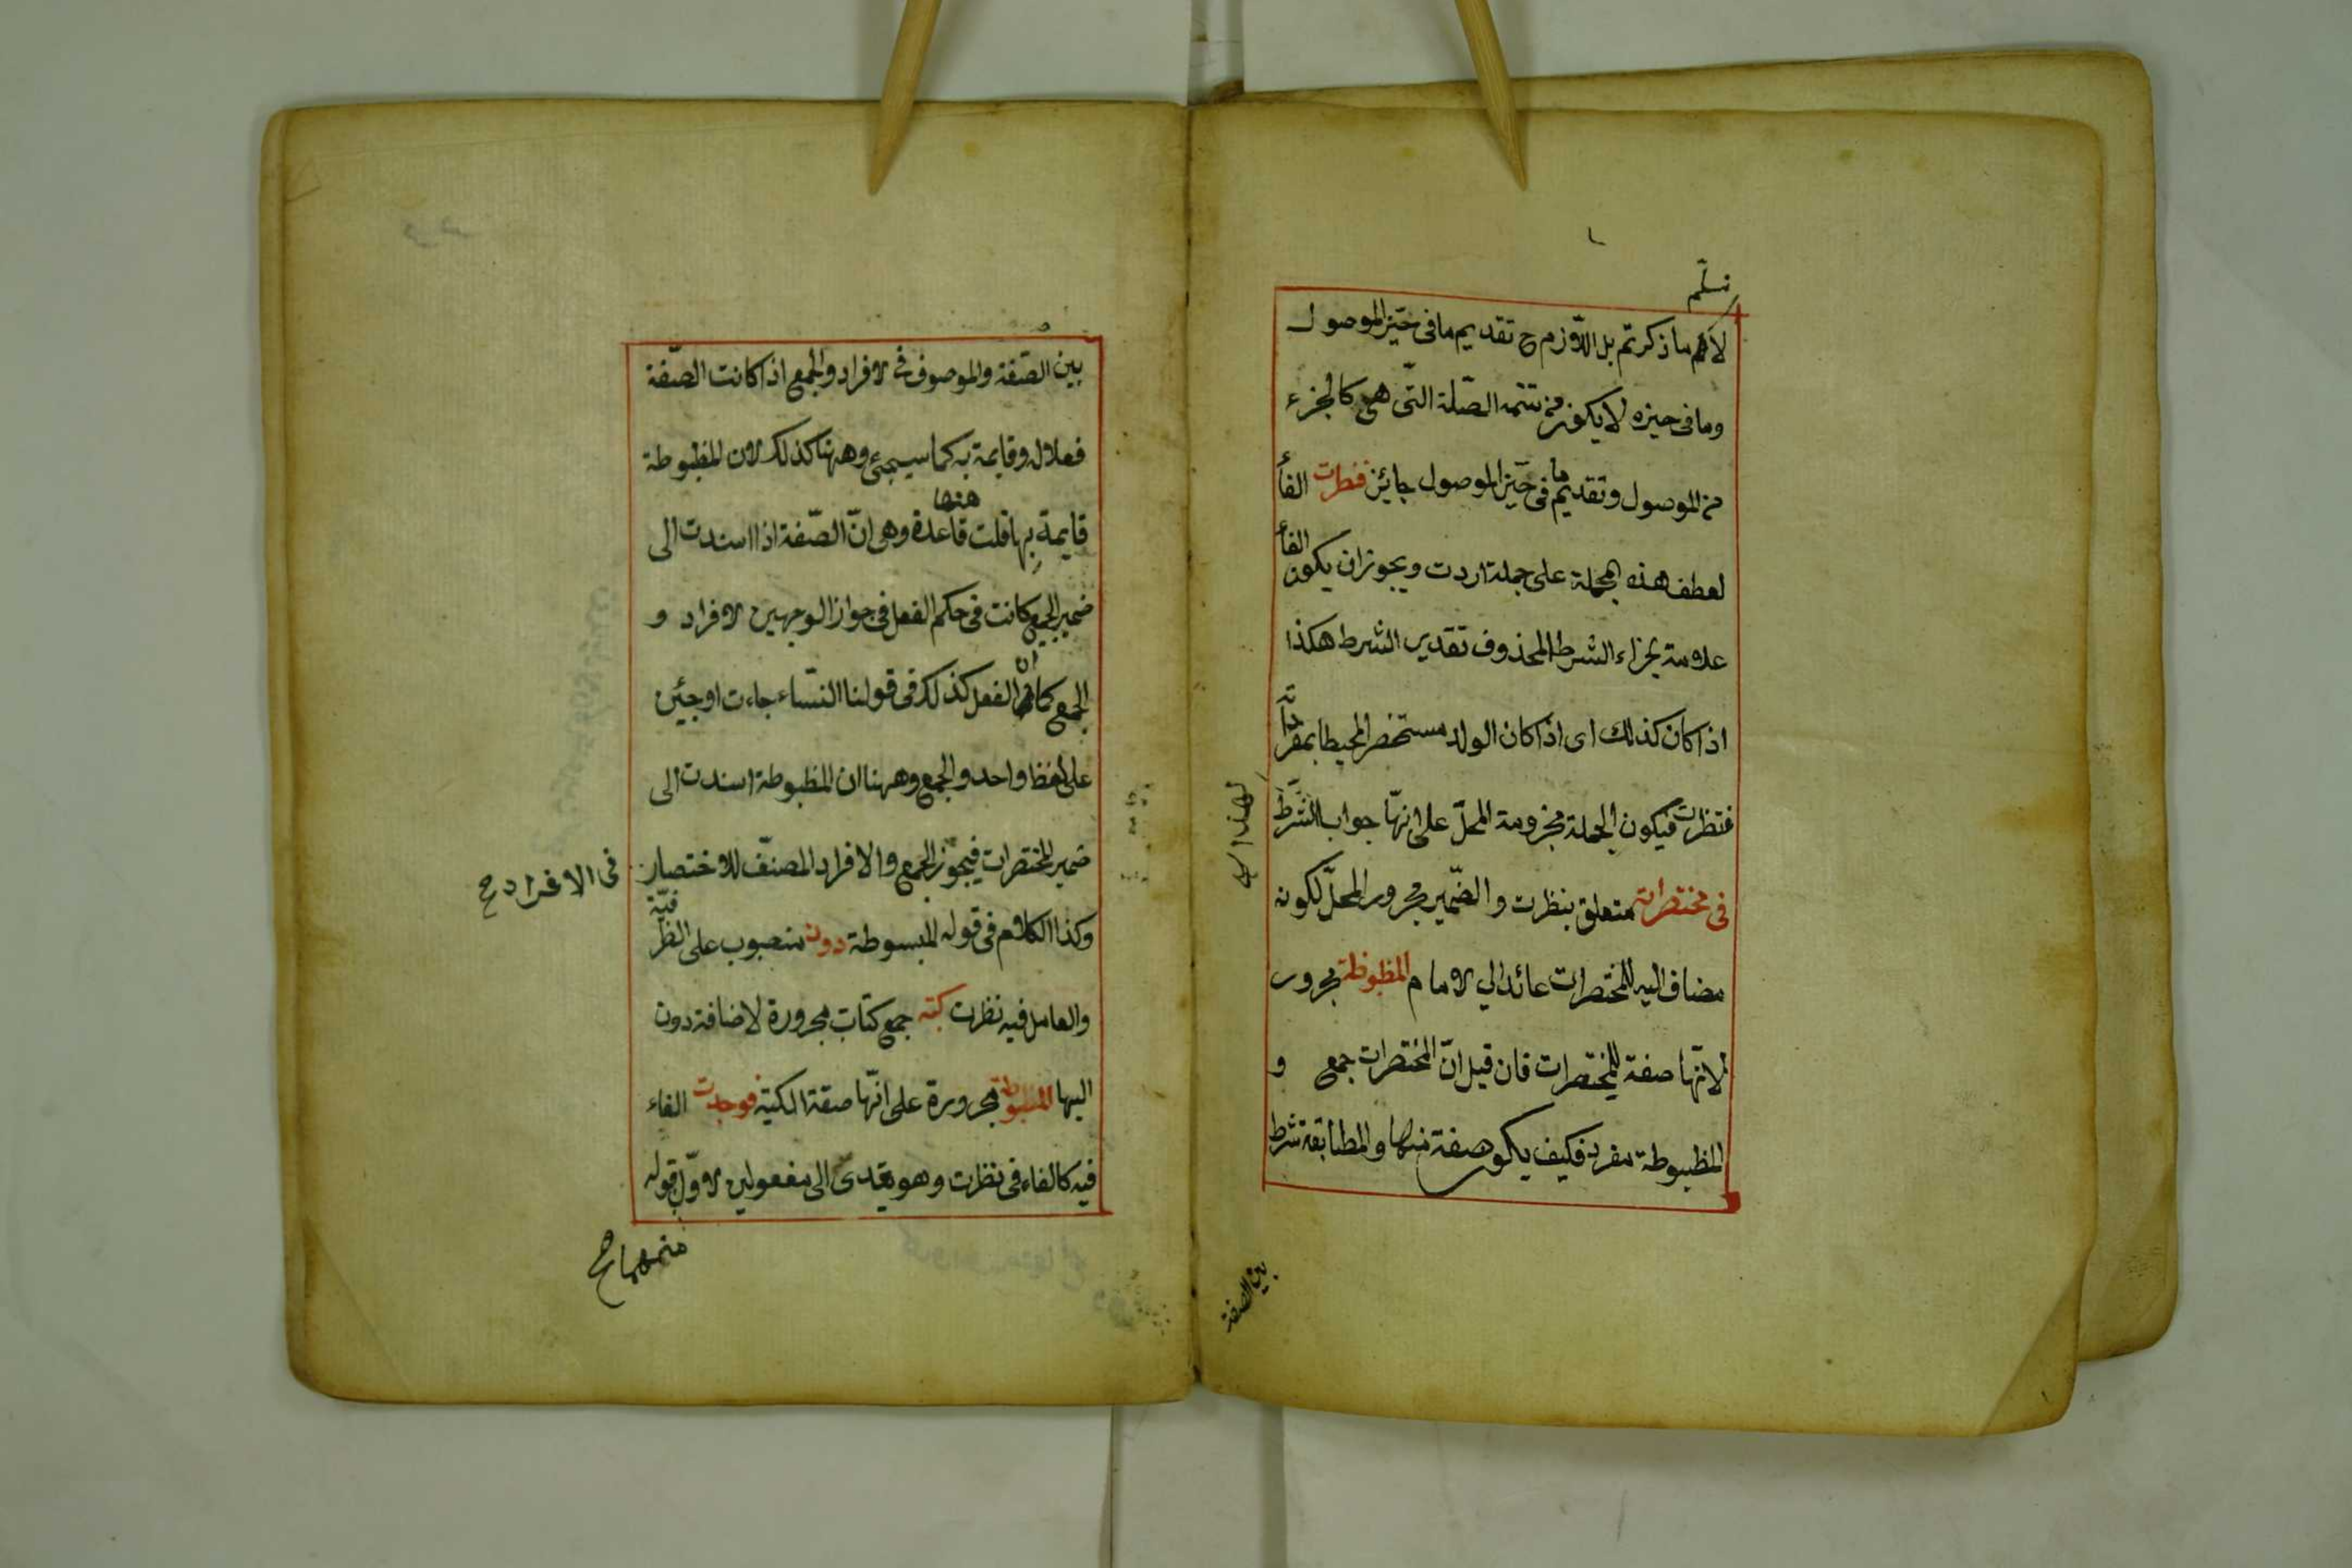 نسلّم
لا ما ذكرتم بل اللازم ح تقديم ما فى حيّز الموصول
وما فى حيزه لا يكون من تتمة الصّلة التّى هى كالجزء
من الموصول وتقديم ما فى حيّز الموصول جايئز فنظرت الفاٴ
لعطف هذه الجملة على جملة اردت ويجوز ان يكون الفاٴ
علامة لجزاء الشرط المحذوف تقدير الشرط هكذا
اذا كان كذلك اى اذا كان الولد مستحضر المحيطا بمفرداته
فنظرت فيكون الجملة مجزومة المحلّ على انهّا جواب الشّرط
لهذا
فى مختصراته متعلق بنظرت والضّمير مجرور المحلّ لكونه
مضاف اليه للمختصرات عائد الي الامام المظبوطة مجرور
لانّهٔا صفة للمختصرات فان قيل انّ المختصرات جمع و
المظبوطة مفرد فكيف يكون صفة منها والمطابقة شرط
بين الصفة
بين الصّفة والموصوف فى الافراد والجمع اذا كانت الصّفة
فعلا له وقايمة به كما سيجئ وههنا كذلك لان المظبوطة
قايمة بها قلت ههنا قاعدة وهى انّ الصّفة اذا اسندت الى
ضمير الجمع كانت فى حكم الفعل فى جواز الوجهين الافراد و
الجمع كما ان الفعل كذلك فى قولنا النسّاء جاءت او جئين
على لفظ واحد والجمع وههنا ان المظبوطة اسندت الى
ضمير المختصرات فيجوز الجمع والافراد المصنّف للاختصار
فى الافراد ح
وكذا الكلام فى قوله المبسوطة دون منصوب على الظرفيّة
والعامل فيه نظرت كتبه جمع كتاب مجرورة لاضافة دون
اليها المبسوطة مجرورة على انّها صفة الكتبه فوجدت الفاء
فيه كالفاء فى نظرت وهو يتعدّى الى مفعولين الاوّل قوله